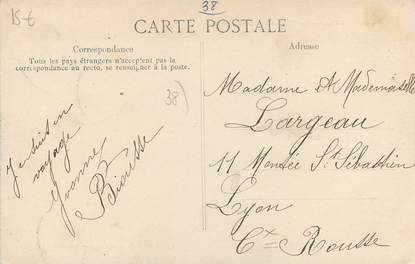 15 €
38
CARTE POSTALE
Correspondance
Tous les pays étrangers n'acceptent pas la
correspondance au recto, se renseigner à la poste.
Adresse
38)
Je suis en
voyage
Yvonne
Madame & Mademoiselle
Largeau
11 Montée St Sébastien
Lyon
Cx = Rousse